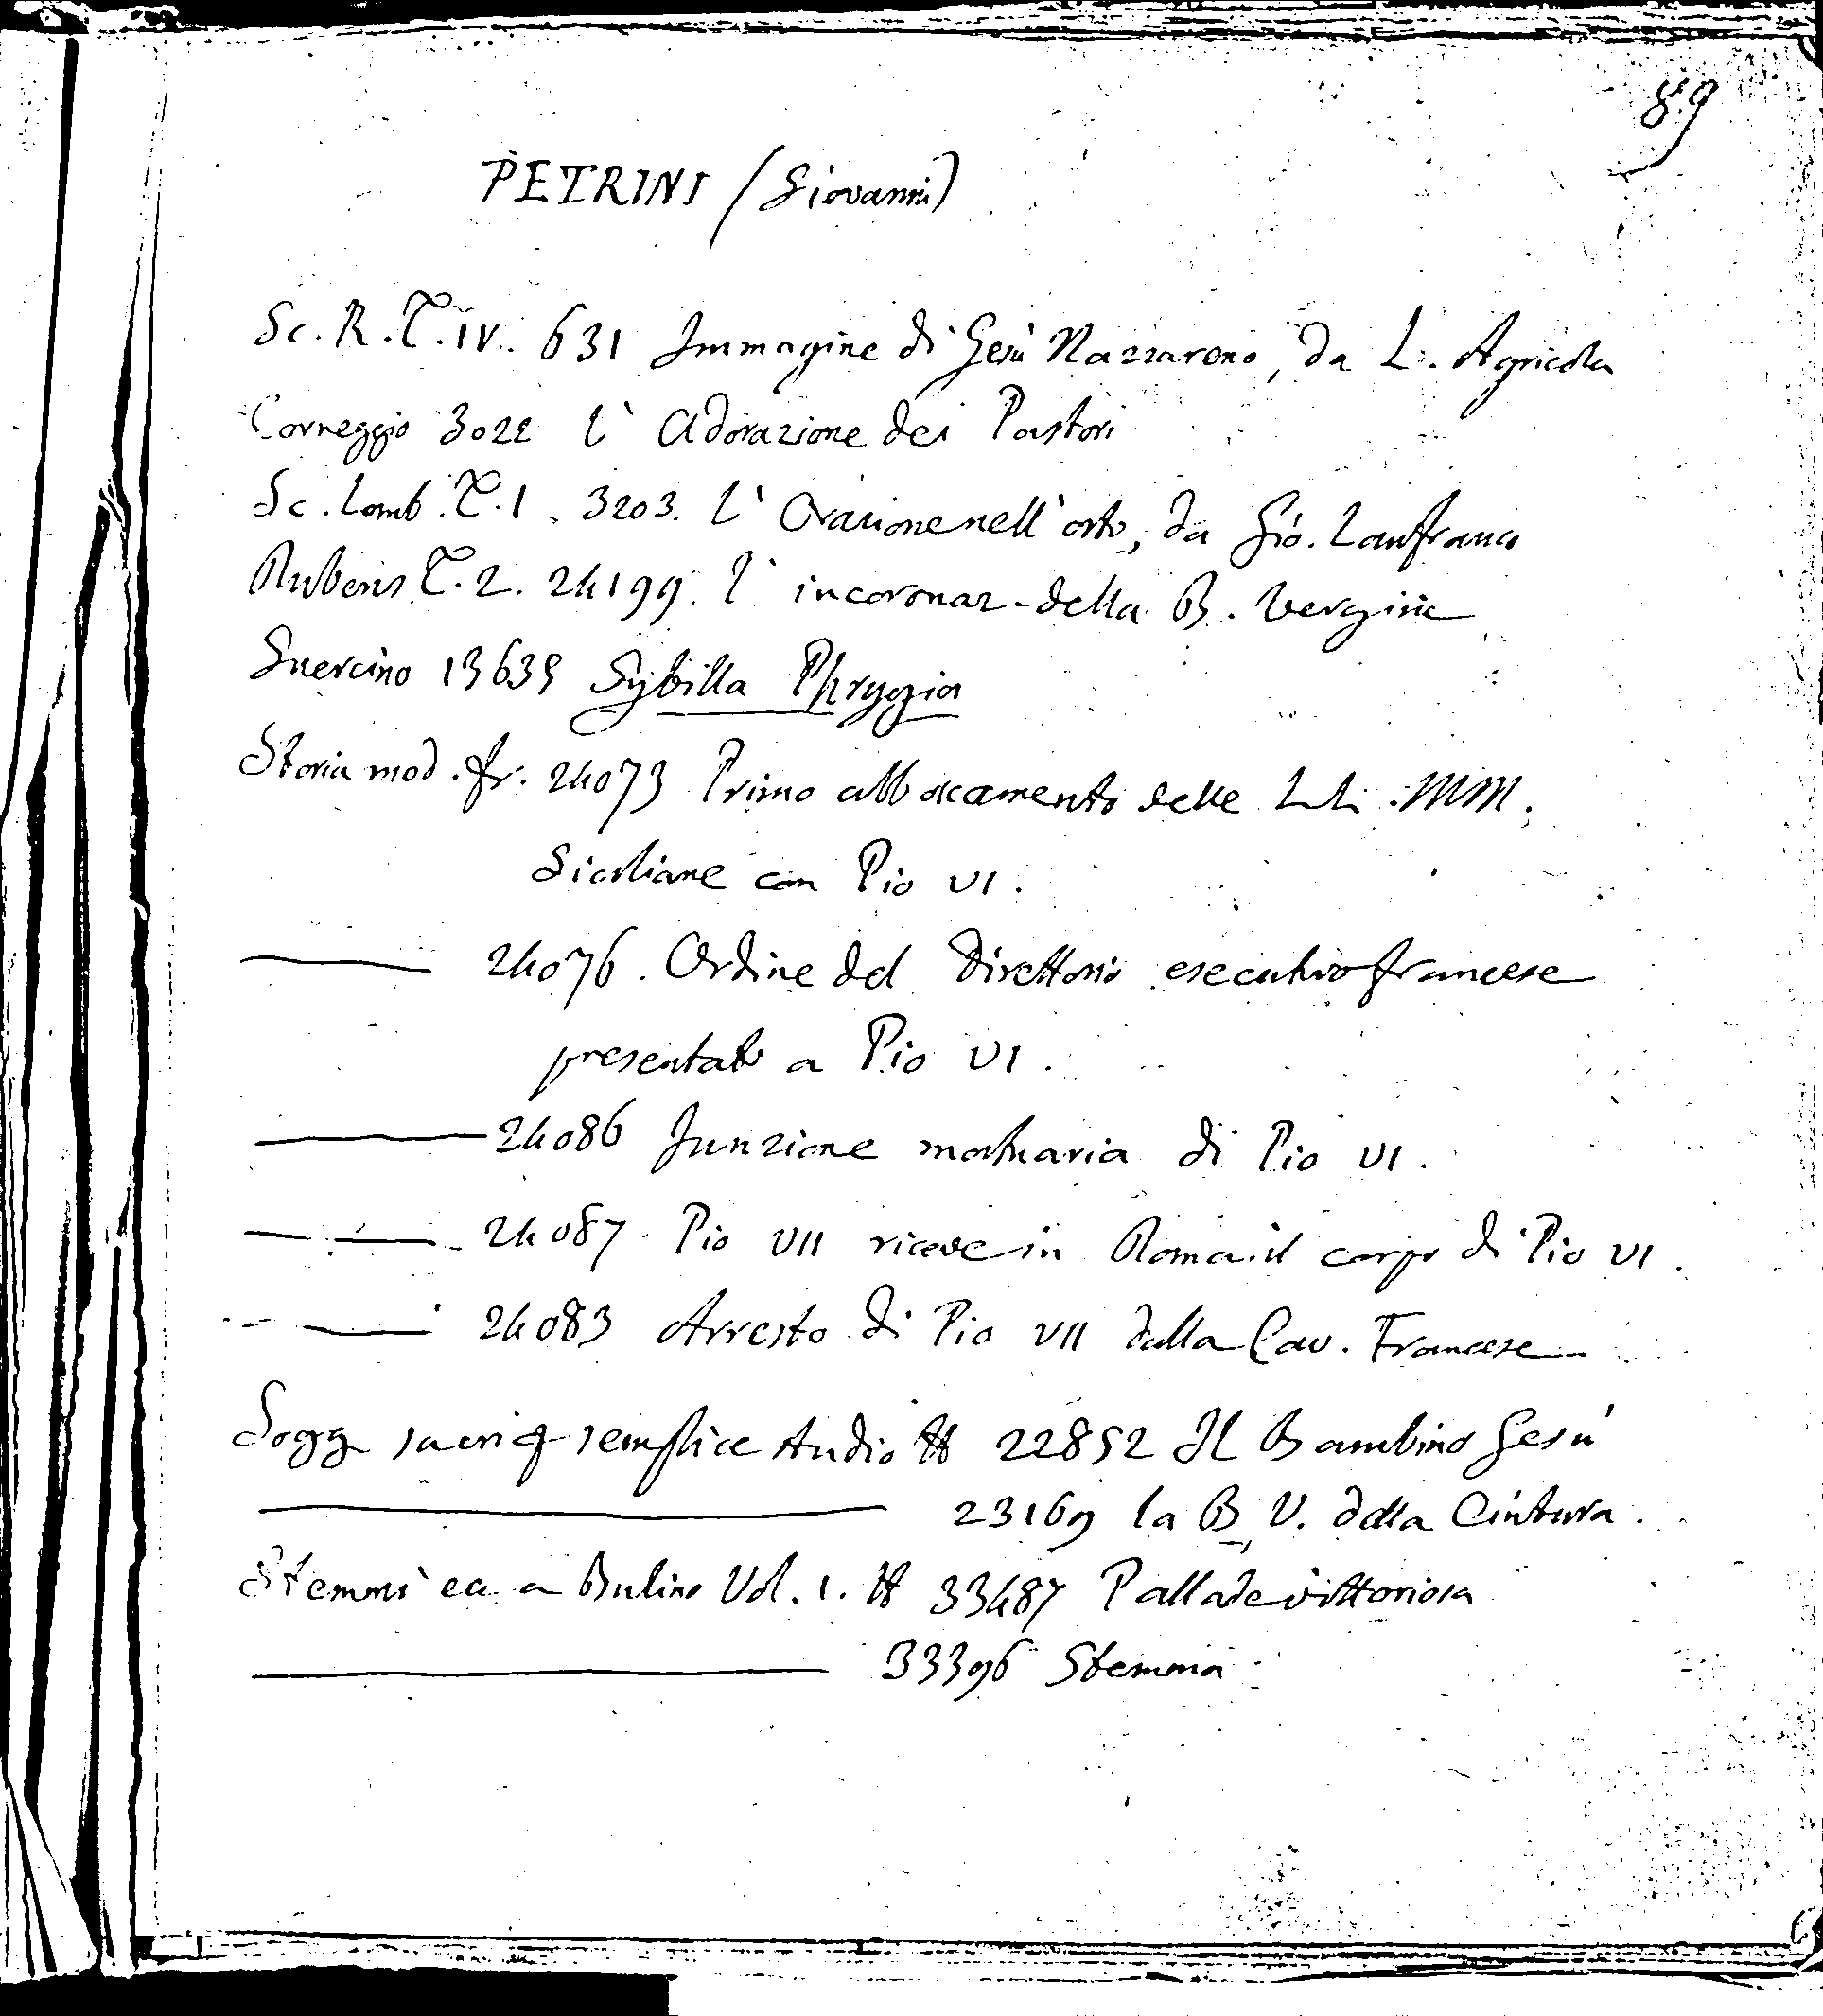 89
PETRINI (Giovanni)
Sc. R. T. IV. 631 Immagine di Gesù Nazzareno, da L. Agricola
Correggio 3022 l'Adorazione dei Pastori
Sc. Lomb. T. I. 3203. l'Orazione nell'orto, da Gio. Lanfranco
Rubens T. 2. 24199. l'incoronaz-della B. Vergine
Guercino 13635 Sybilla Phrygia
Storia mod. fr. 24073 Primo abboccamento delle LL. MM.
Siciliane con Pio VI.
24076. Ordine del Direttorio esecutivo francese
presentato a Pio VI.
24086 Funzione mortuaria di Pio VI.
24087 Pio VII riceve in Roma il corpo di Pio VI.
24083 Arresto di Pio VII dalla Cav. Francese
Sogg sacri semplice studio 22852 Il Bambino Gesù
23169 la B. V. della Cintura.
Stemmi ec a Bulino Vol. 1. 33487 Pallade vittoriosa
33396 Stemma